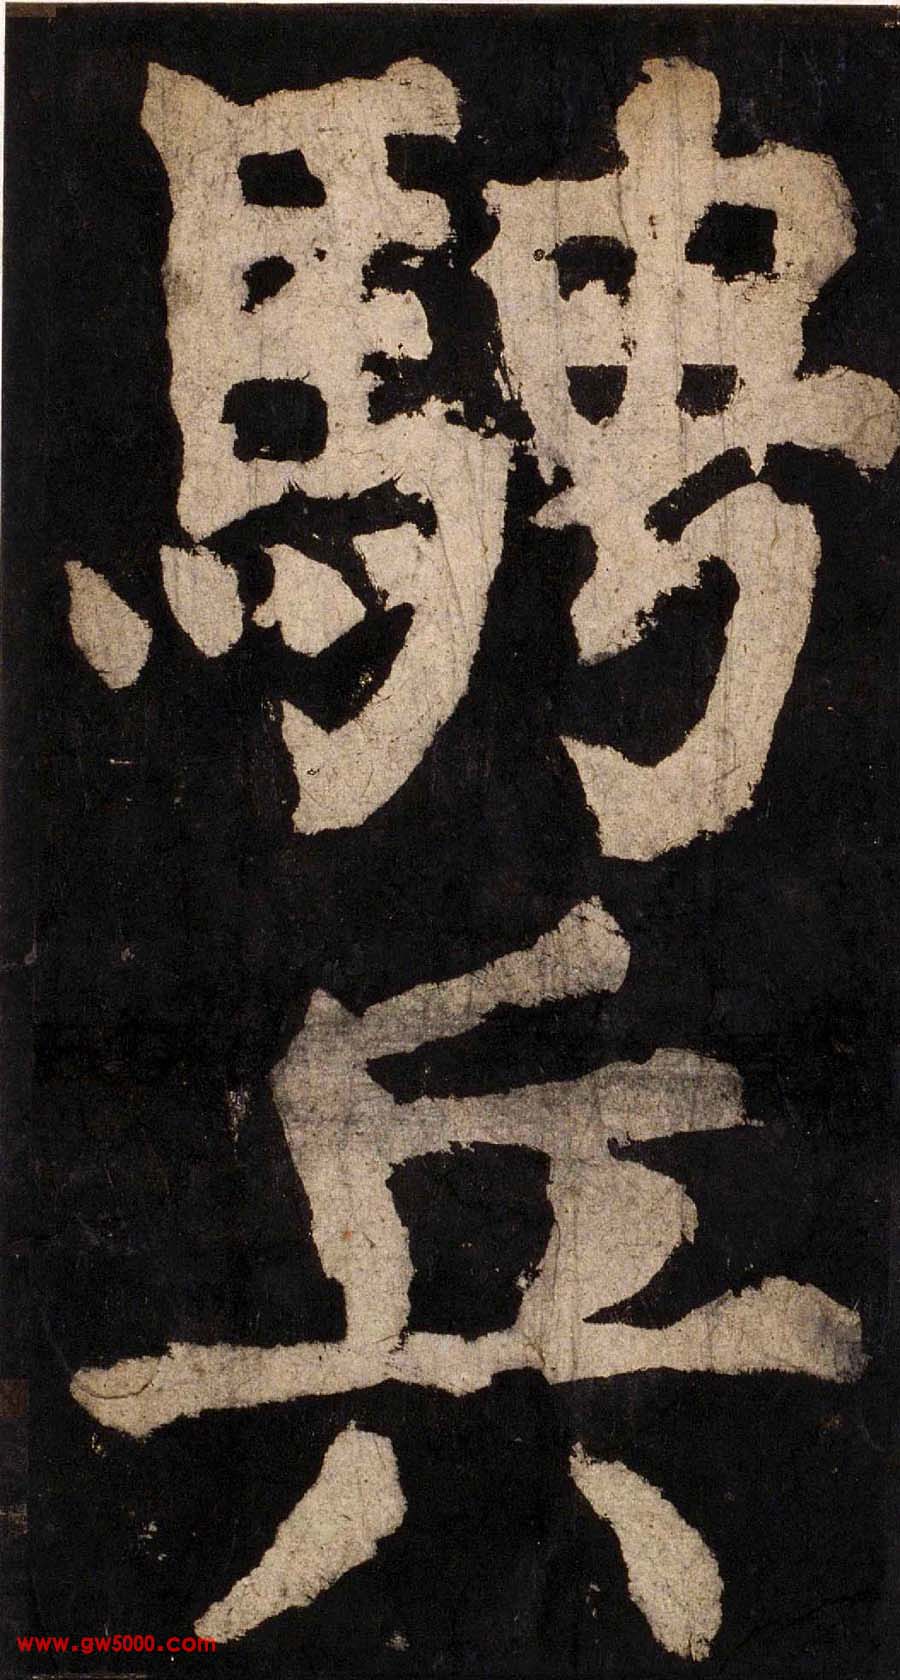 騁兵
www.gw5000.com